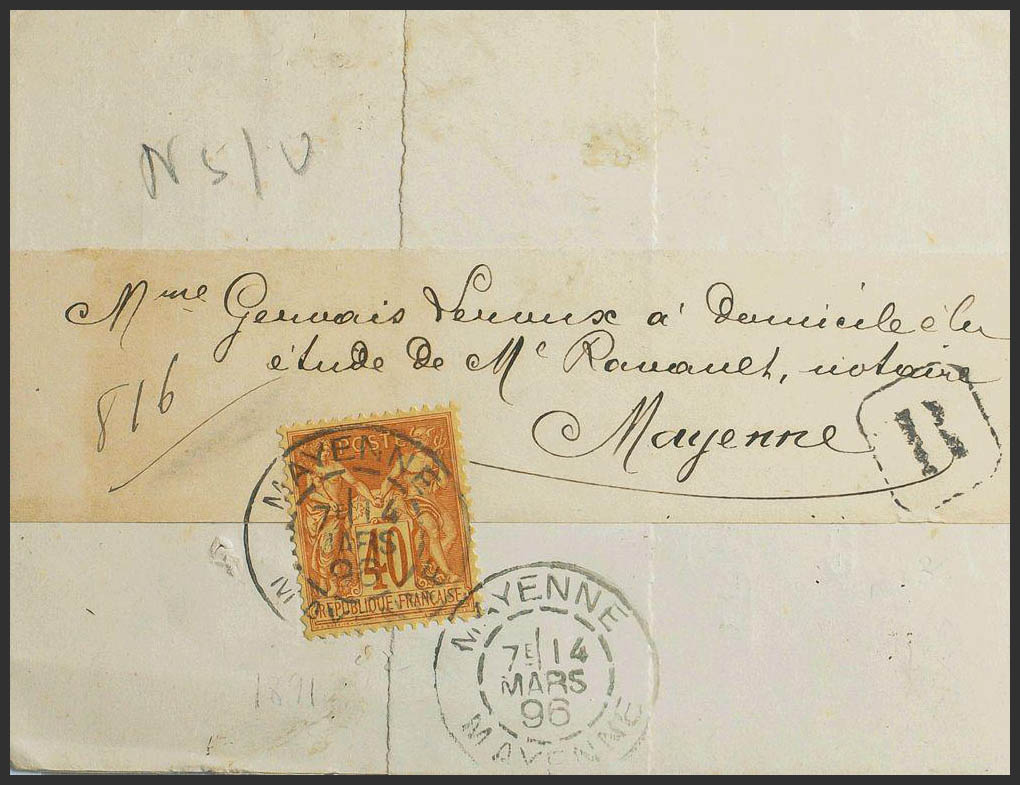 N 5/0
Mme Gervais Leroux à domicile élu
étude de Me Ravault, notaire
Mayenne
816
R
POSTES
40
REPUBLIQUE FRANÇAISE
MAYENNE
7E 14
MARS
96
MAYENNE
7E 14
MARS
96
MAYENNE
1891